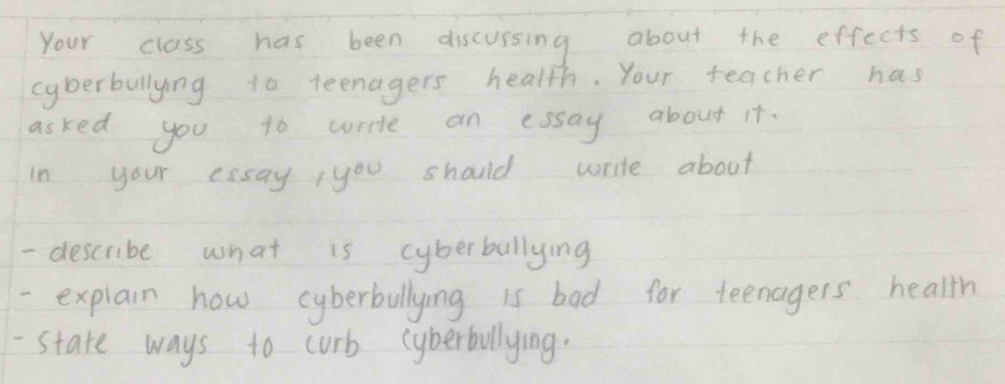 Your class has been discussing about the effects of
cyberbullying to teenagers health. Your teacher has
asked you to write an essay about it.
in your essay, you should write about
- describe what is cyberbullying
- explain how cyberbullying is bad for teenagers health
- State ways to curb cyberbullying.